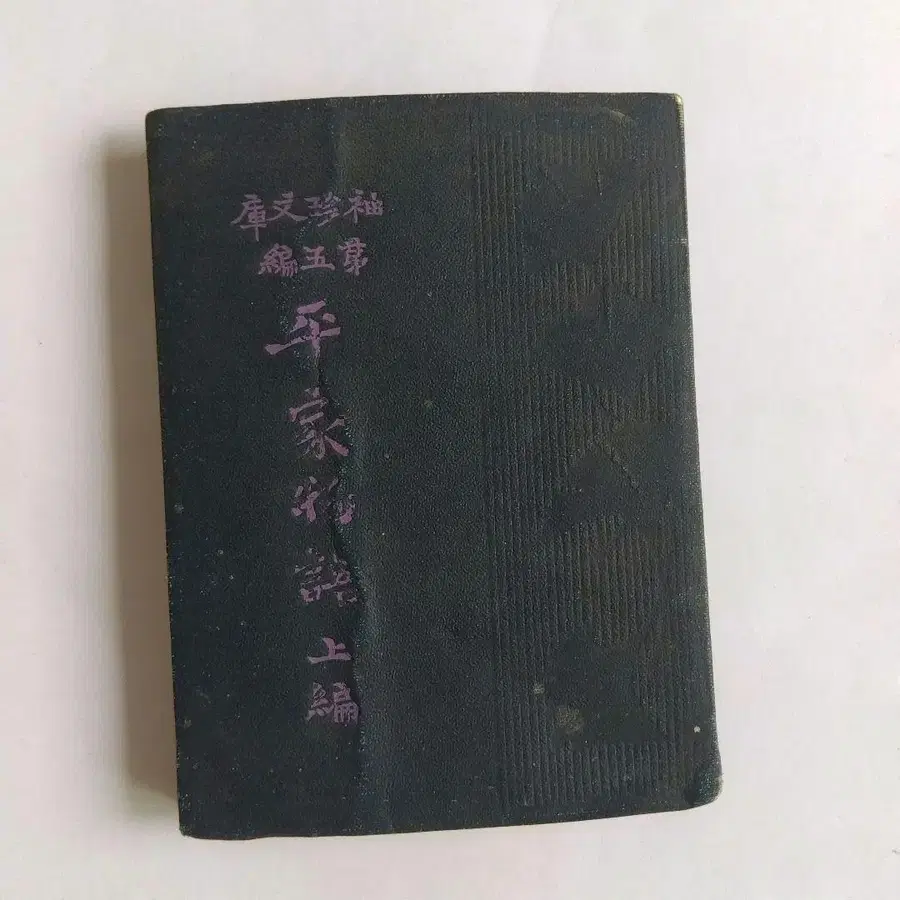 袖珍文庫
第五編
平家物語
上編